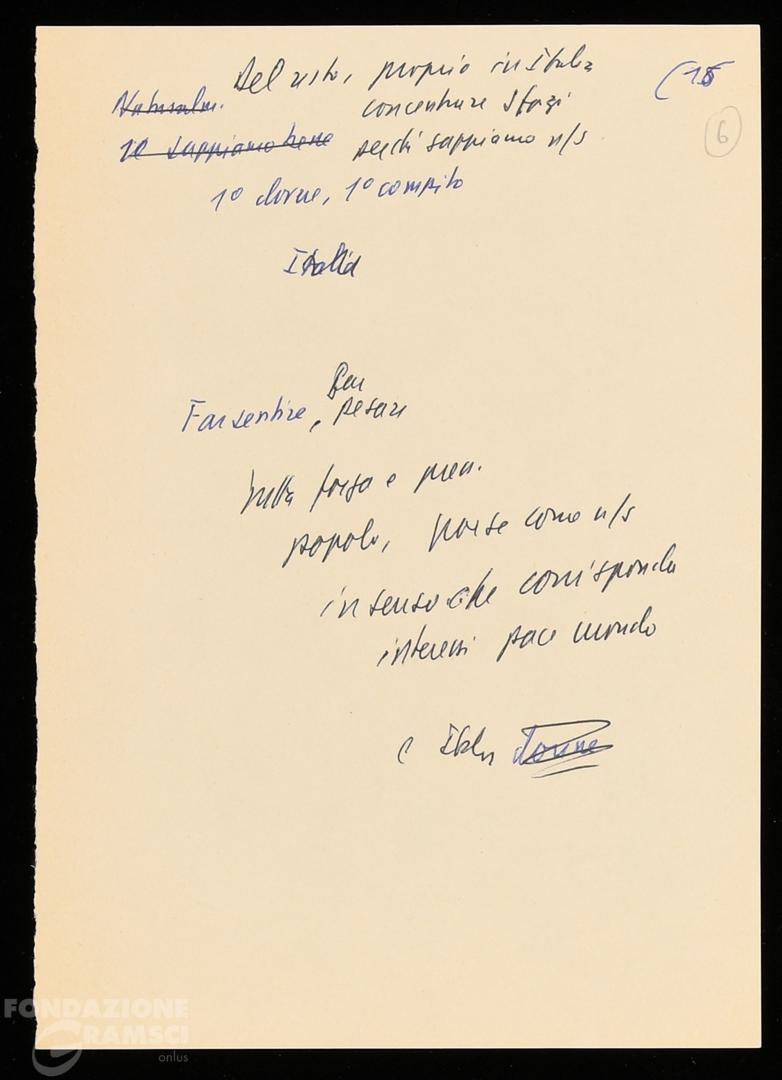 Del resto, proprio in Italia (15
Naturalm. concentrare sforzi 6
lo sappiamo bene perché sappiamo n/s
1° dovere, 1° compito
Italia
Far
Far sentire, pesare
nella forza e
popolo, paese come n/s
in senso che corrisponda
interessi pace mondo
( Italia donne
FONDAZIONE
GRAMSCI
onlus